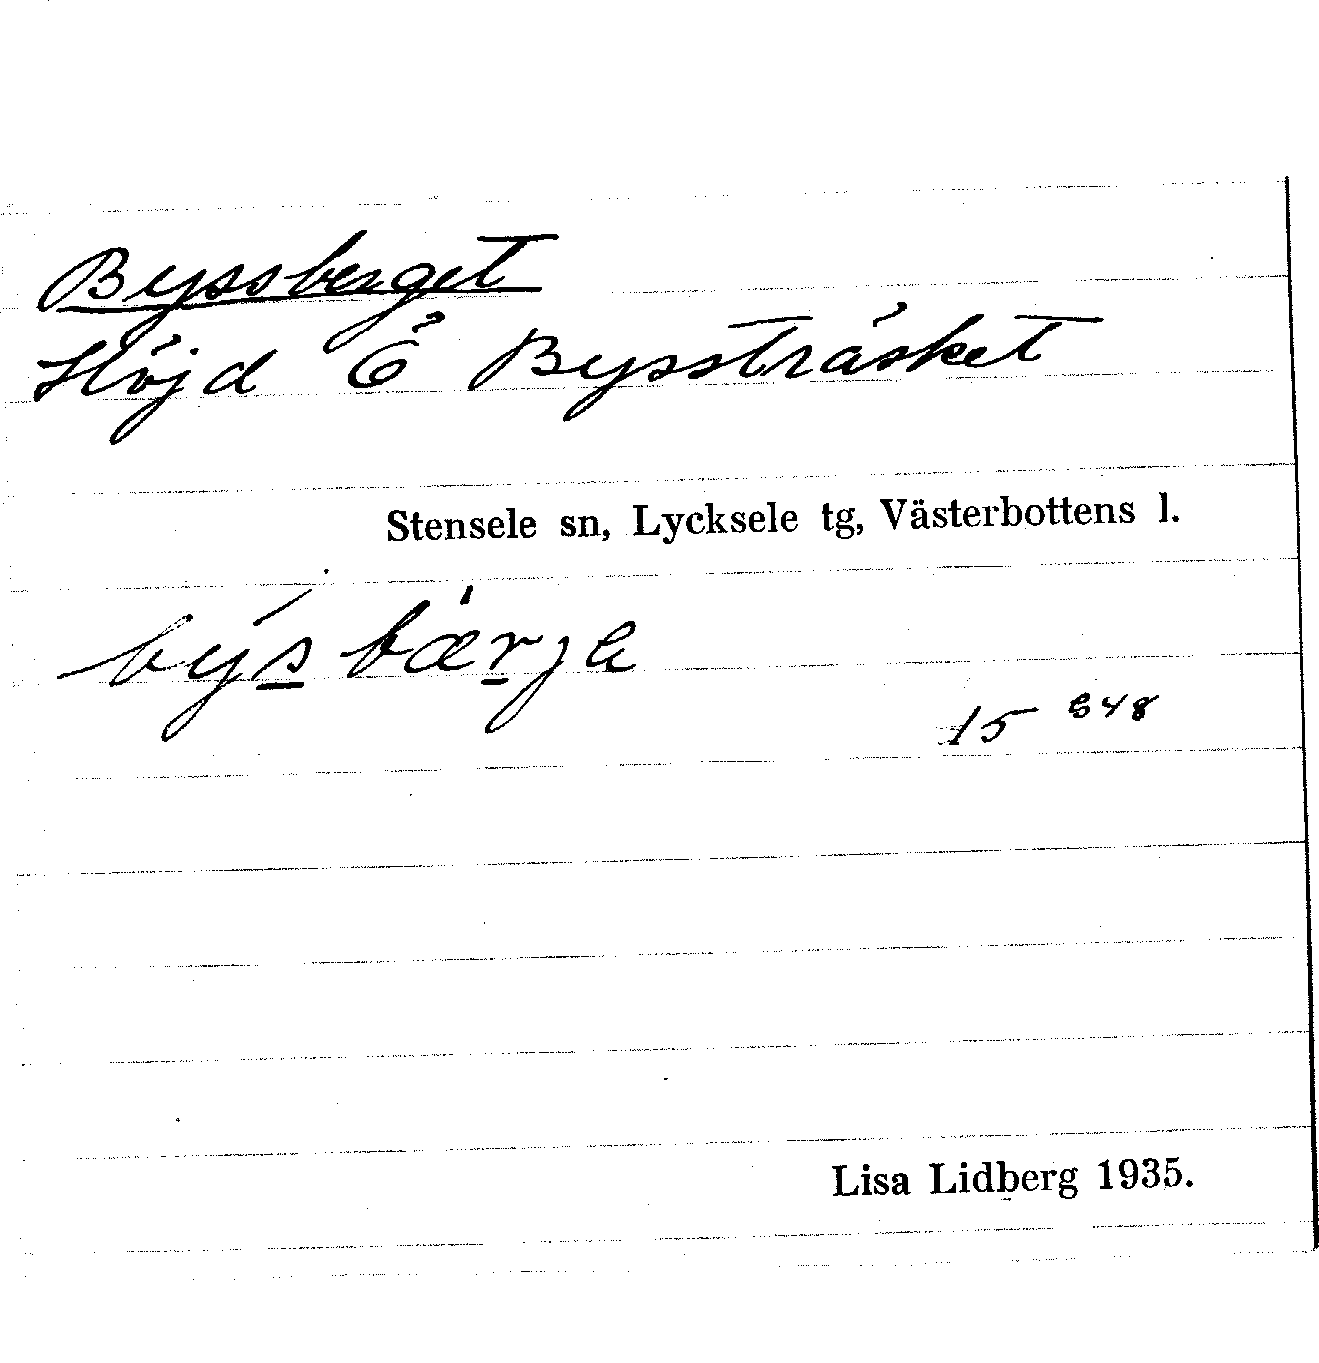 Byssberget
Höjd Ö Bysstråsket
Stensele sn, Lycksele tg, Västerbottens l.
býs̱bæ̀ṟja
15 848
Lisa Lidberg 1935.